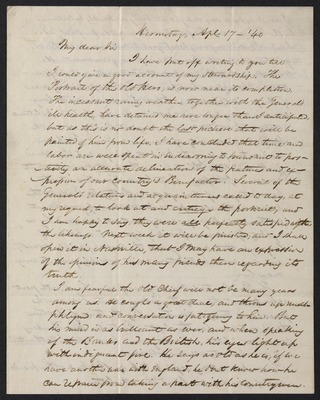 Hermitage, Apl. 17 - '40
My dear Sir
I have put off writing to you till
I could give a good account of my stewardship. The
Portrait of the old Hero, is now near its completion.
The incessant rainy weather together with the Generals
ill health, have detained me now longer than I anticipated
but as this is no doubt the last picture that will be
painted of him from life, I have concluded that time and
labor are well spent in endeavoring to transmit to pos-
terity an accurate delineation of the features and ex-
pression of our Country's Benefactor. Several of the
Generals relatives and acquaintances called to day, at
my request, to look at and critique the portrait, and
I am happy to say they were all perfectly satisfied with
the likeness. Next week it will be finished, and I shall
open it in Nashville, that I may have an expression
of the opinions of his many friends there regarding its
truth.
I am fearful the old Chief will not be many years
among us. He coughs a great deal, and throws up much
phlegm and conversation is fatiguing to him. But
his mind is as brilliant as ever, and when speaking
of the Banks and the British, his eyes light up
with indignant fire. He says as old as he is, if we
have another war with England he dont know how he
can refrain from taking a part with his Countrymen.